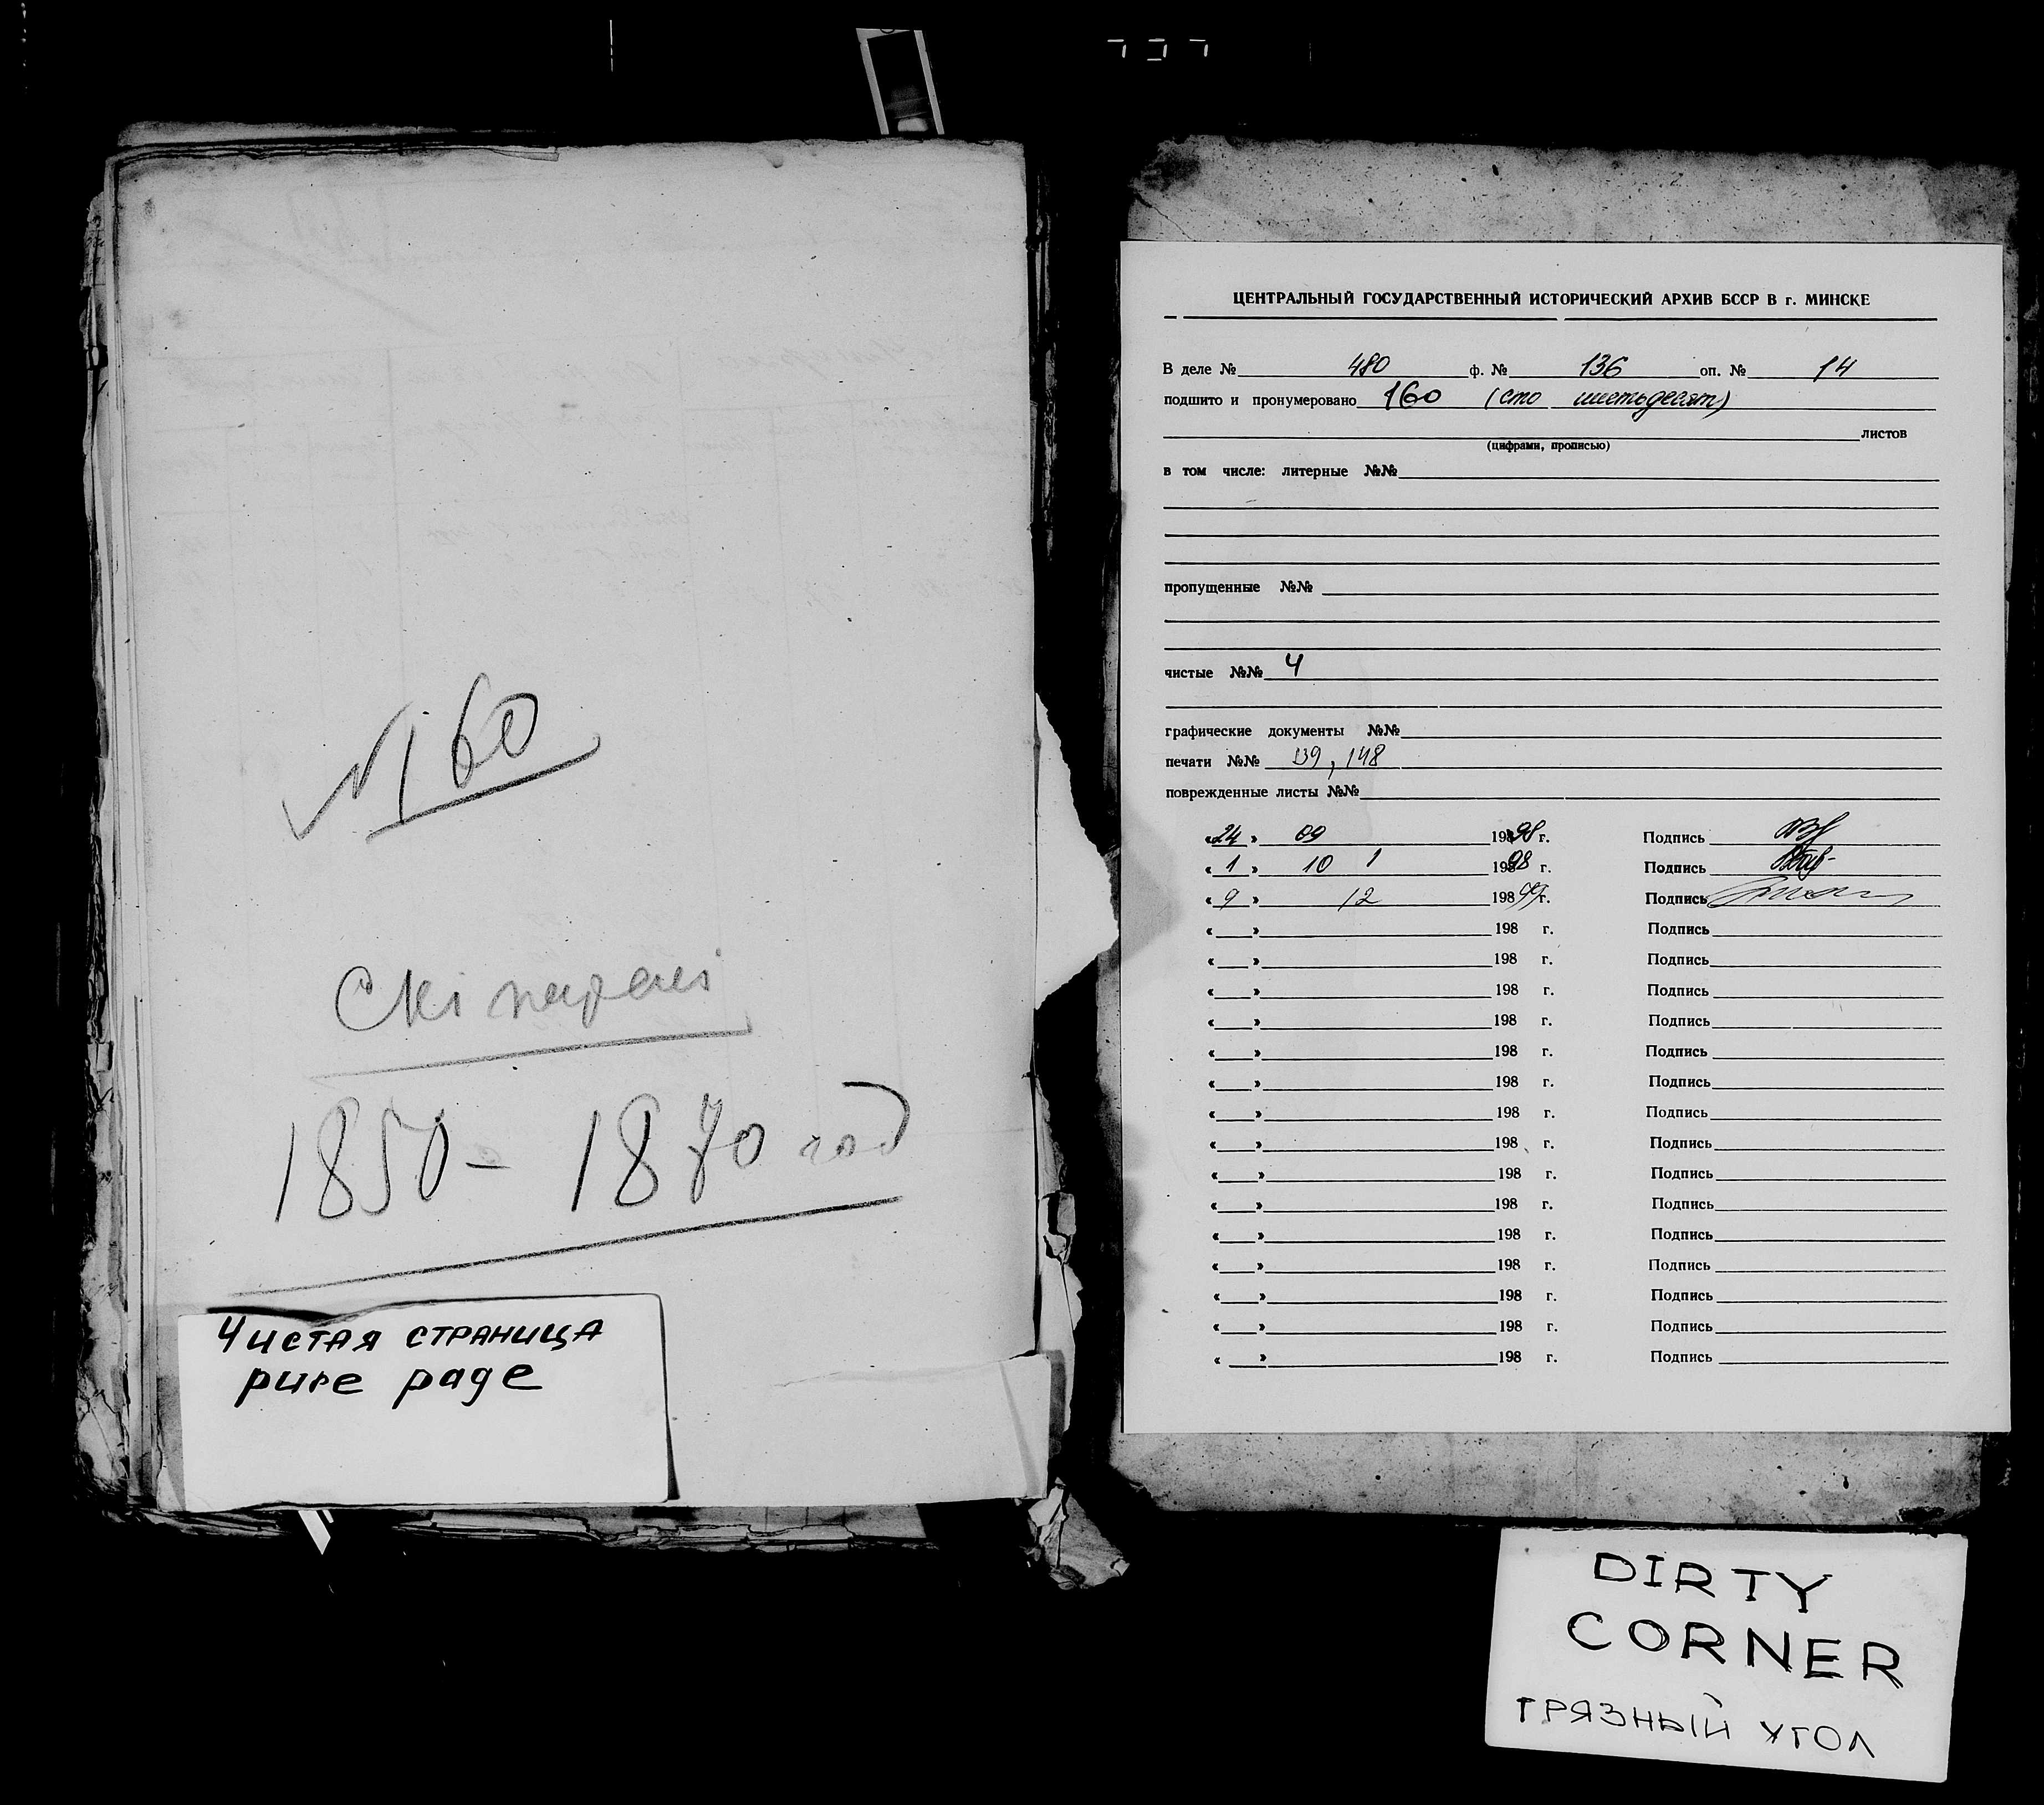 № 160
1850 – 1870 год
Чистая страница
pure page
ЦЕНТРАЛЬНЫЙ ГОСУДАРСТВЕННЫЙ ИСТОРИЧЕСКИЙ АРХИВ БССР В г. МИНСКЕ
В деле № 480 ф. № 136 оп. № 14
подшито и пронумеровано 160 (сто шестьдесят)
листов
(цифрами, прописью)
в том числе: литерные №№
пропущенные №№
чистые №№ 4
графические документы №№
печати №№ 139, 148
поврежденные листы №№
«24» 09 19898 г. Подпись
«1» 10 1 19898 г. Подпись
«9» 12 19899 г. Подпись
« » 198 г. Подпись
« » 198 г. Подпись
« » 198 г. Подпись
« » 198 г. Подпись
« » 198 г. Подпись
« » 198 г. Подпись
« » 198 г. Подпись
« » 198 г. Подпись
« » 198 г. Подпись
« » 198 г. Подпись
« » 198 г. Подпись
« » 198 г. Подпись
« » 198 г. Подпись
« » 198 г. Подпись
« » 198 г. Подпись
DIRTY
CORNER
ГРЯЗНЫЙ УГОЛ